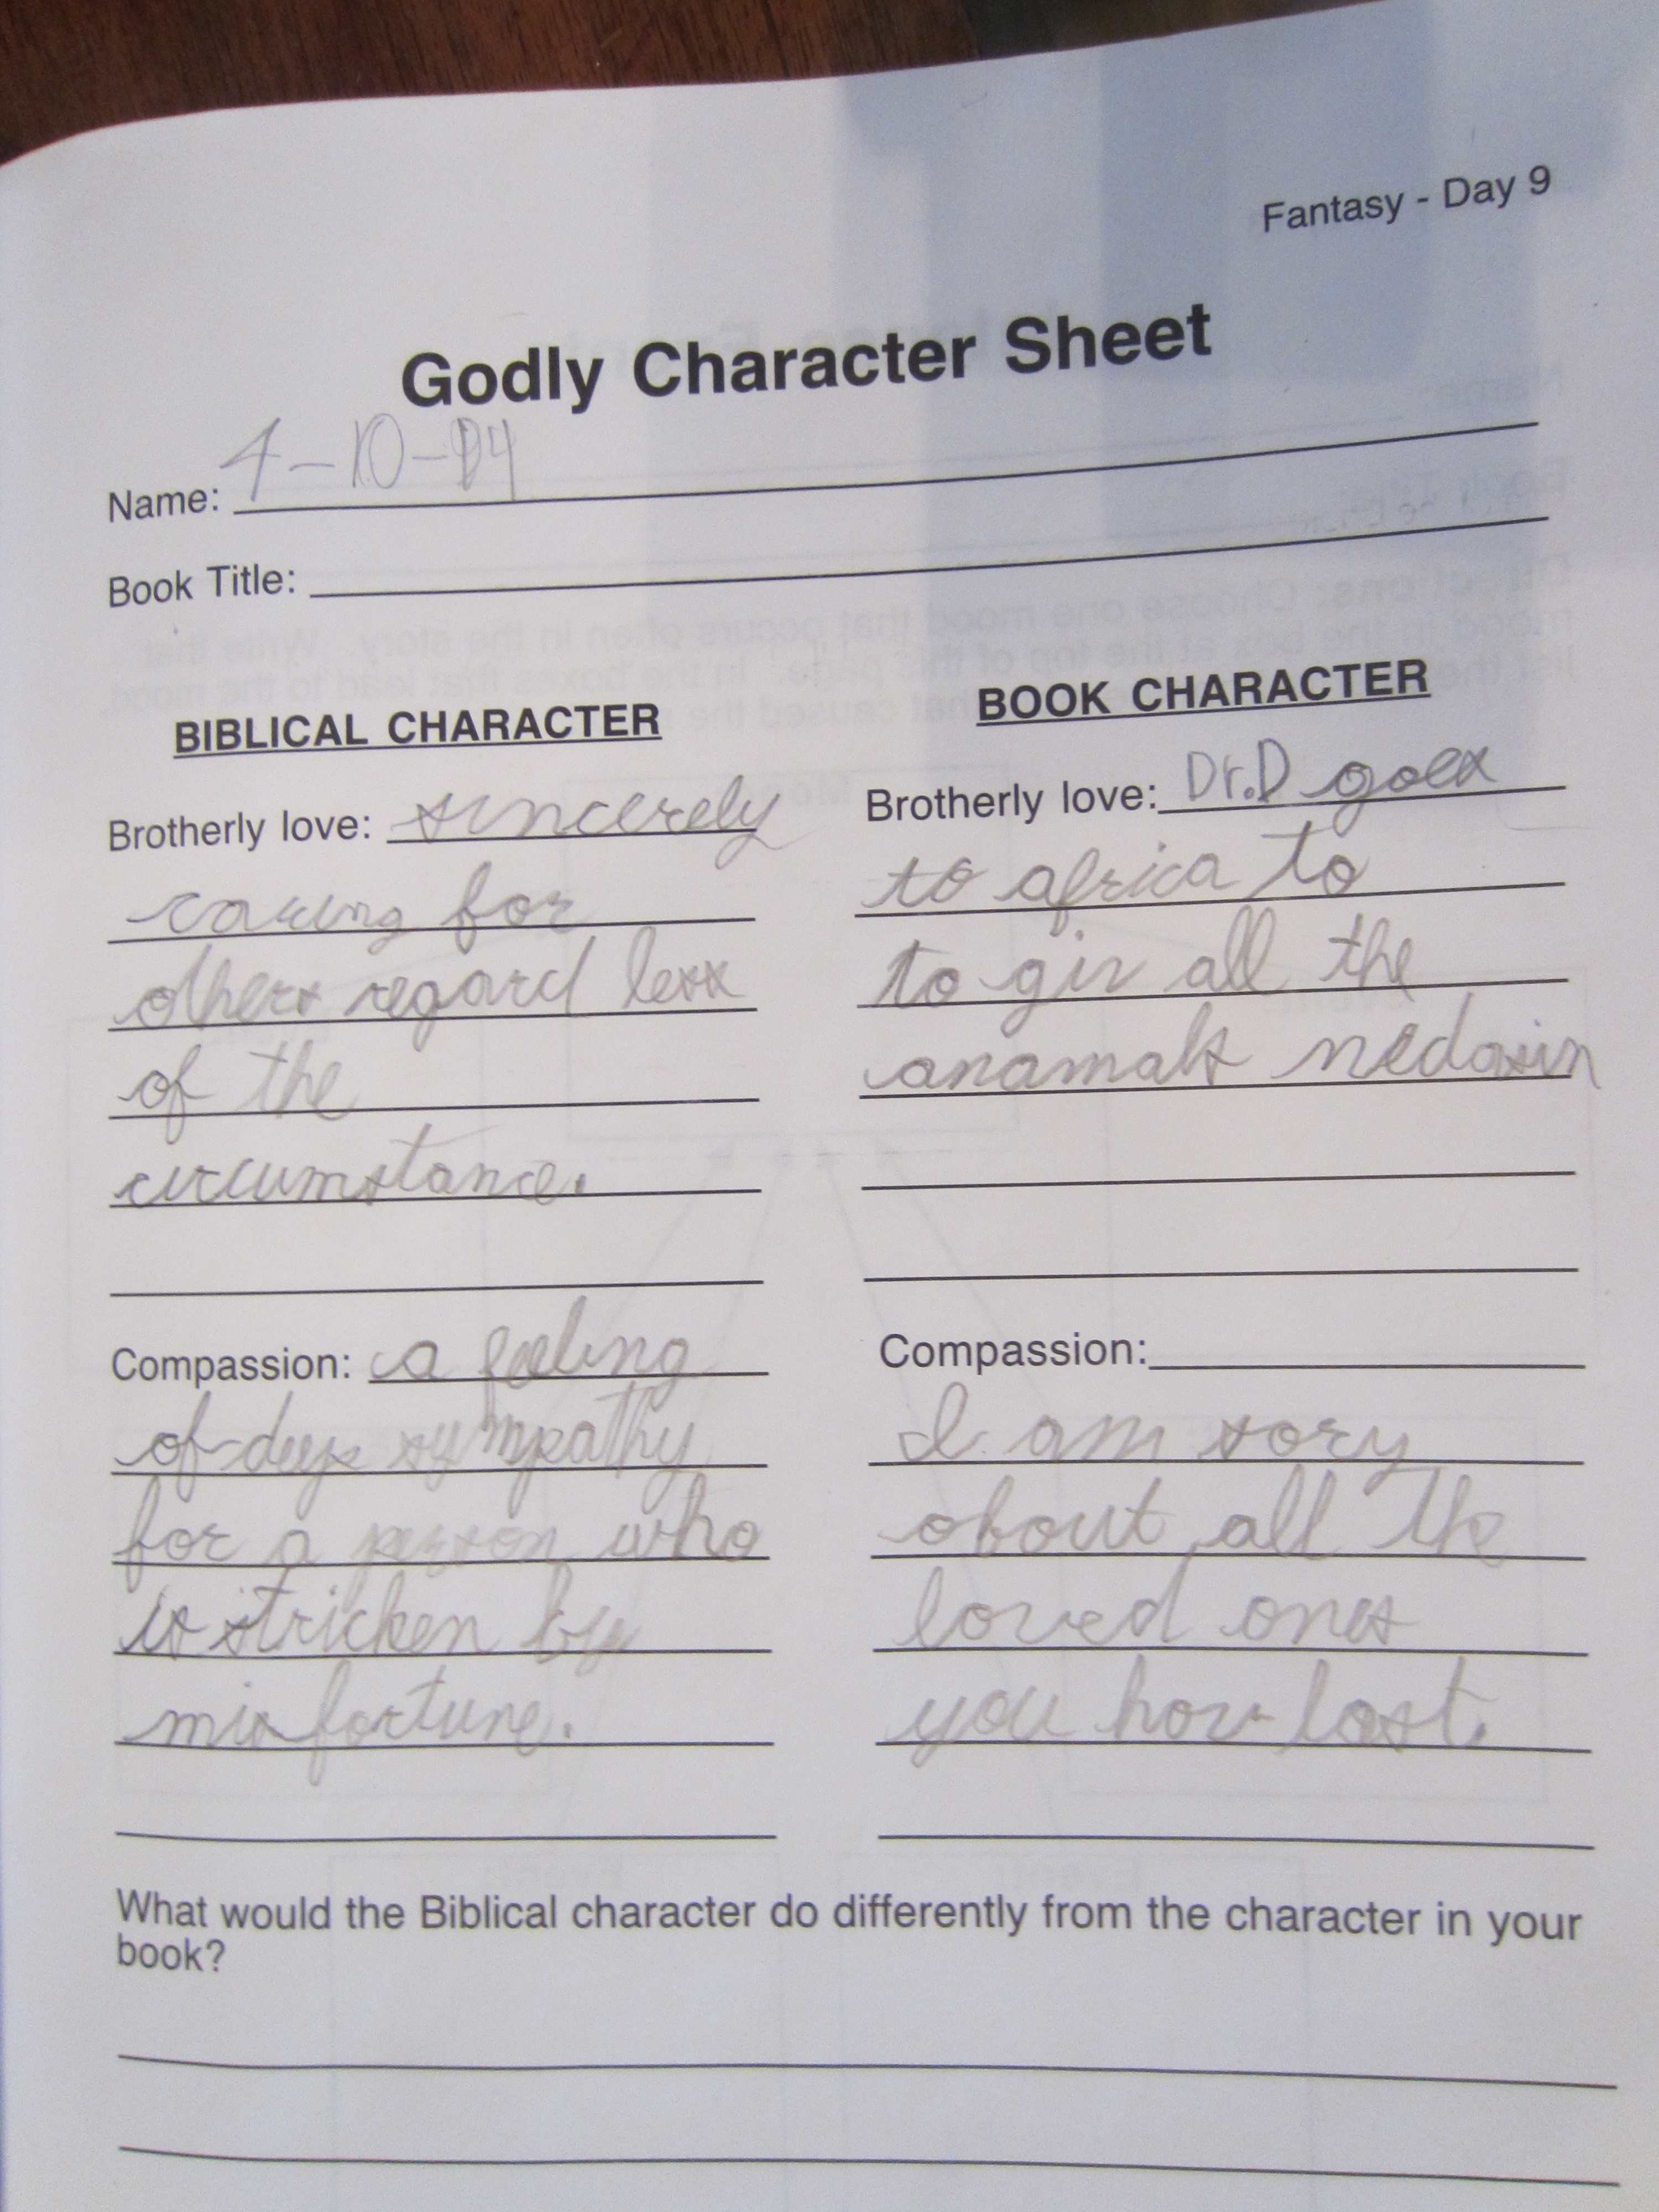 Fantasy - Day 9
Godly Character Sheet
Name: 4-10-14
Book Title:
BIBLICAL CHARACTER
Brotherly love: sincerely
caring for
others regard less
of the
circumstance.
Compassion: a feeling
of deep sympathy
for a person who
is stricken by
misfortune.
BOOK CHARACTER
Brotherly love: Dr.D goes
to africa to
to giv all the
anamals medasin
Compassion:
I am sory
about all the
loved ones
you hav lost.
What would the Biblical character do differently from the character in your
book?